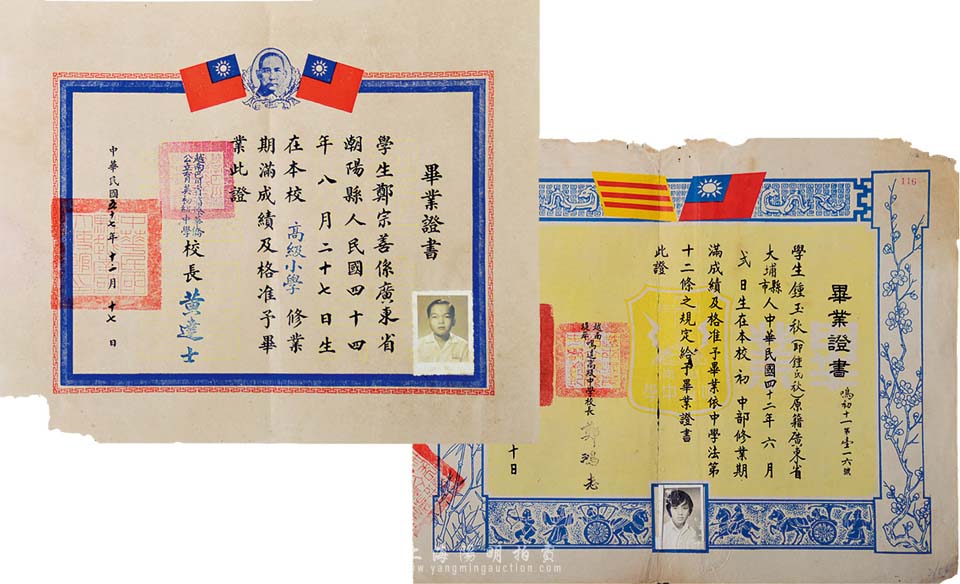 畢業證書
學生鄭宗善係廣東省
潮陽縣人民國四十四
年八月二十七日生
在本校高級小學修業
期滿成績及格准予畢
業此證
校長黄達士
中華民國五十七年十二月十七日
116
畢業證書
鳴初十一第壹一六號
學生鍾玉秋(即鍾氏秋)原籍廣東省
大埔縣市人中華民國四十二年六月
弍日生在本校初中部修業期
滿成績及格准予畢業依中學法第
十二條之規定給予畢業證書
此證
越南
鳴遠高級中學校長
十日
上海陽明拍賣
www.yangmingauction.com